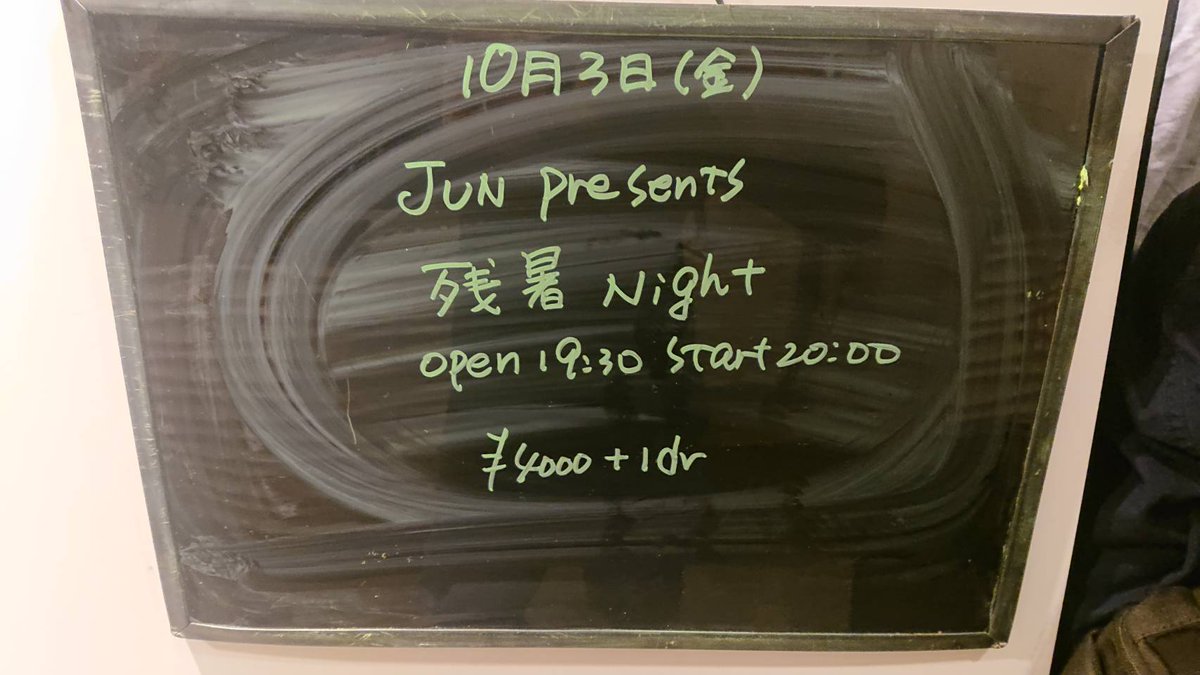 10月3日(金)
JUN presents
残暑 Night
open 19:30 start 20:00
¥4000+1dr